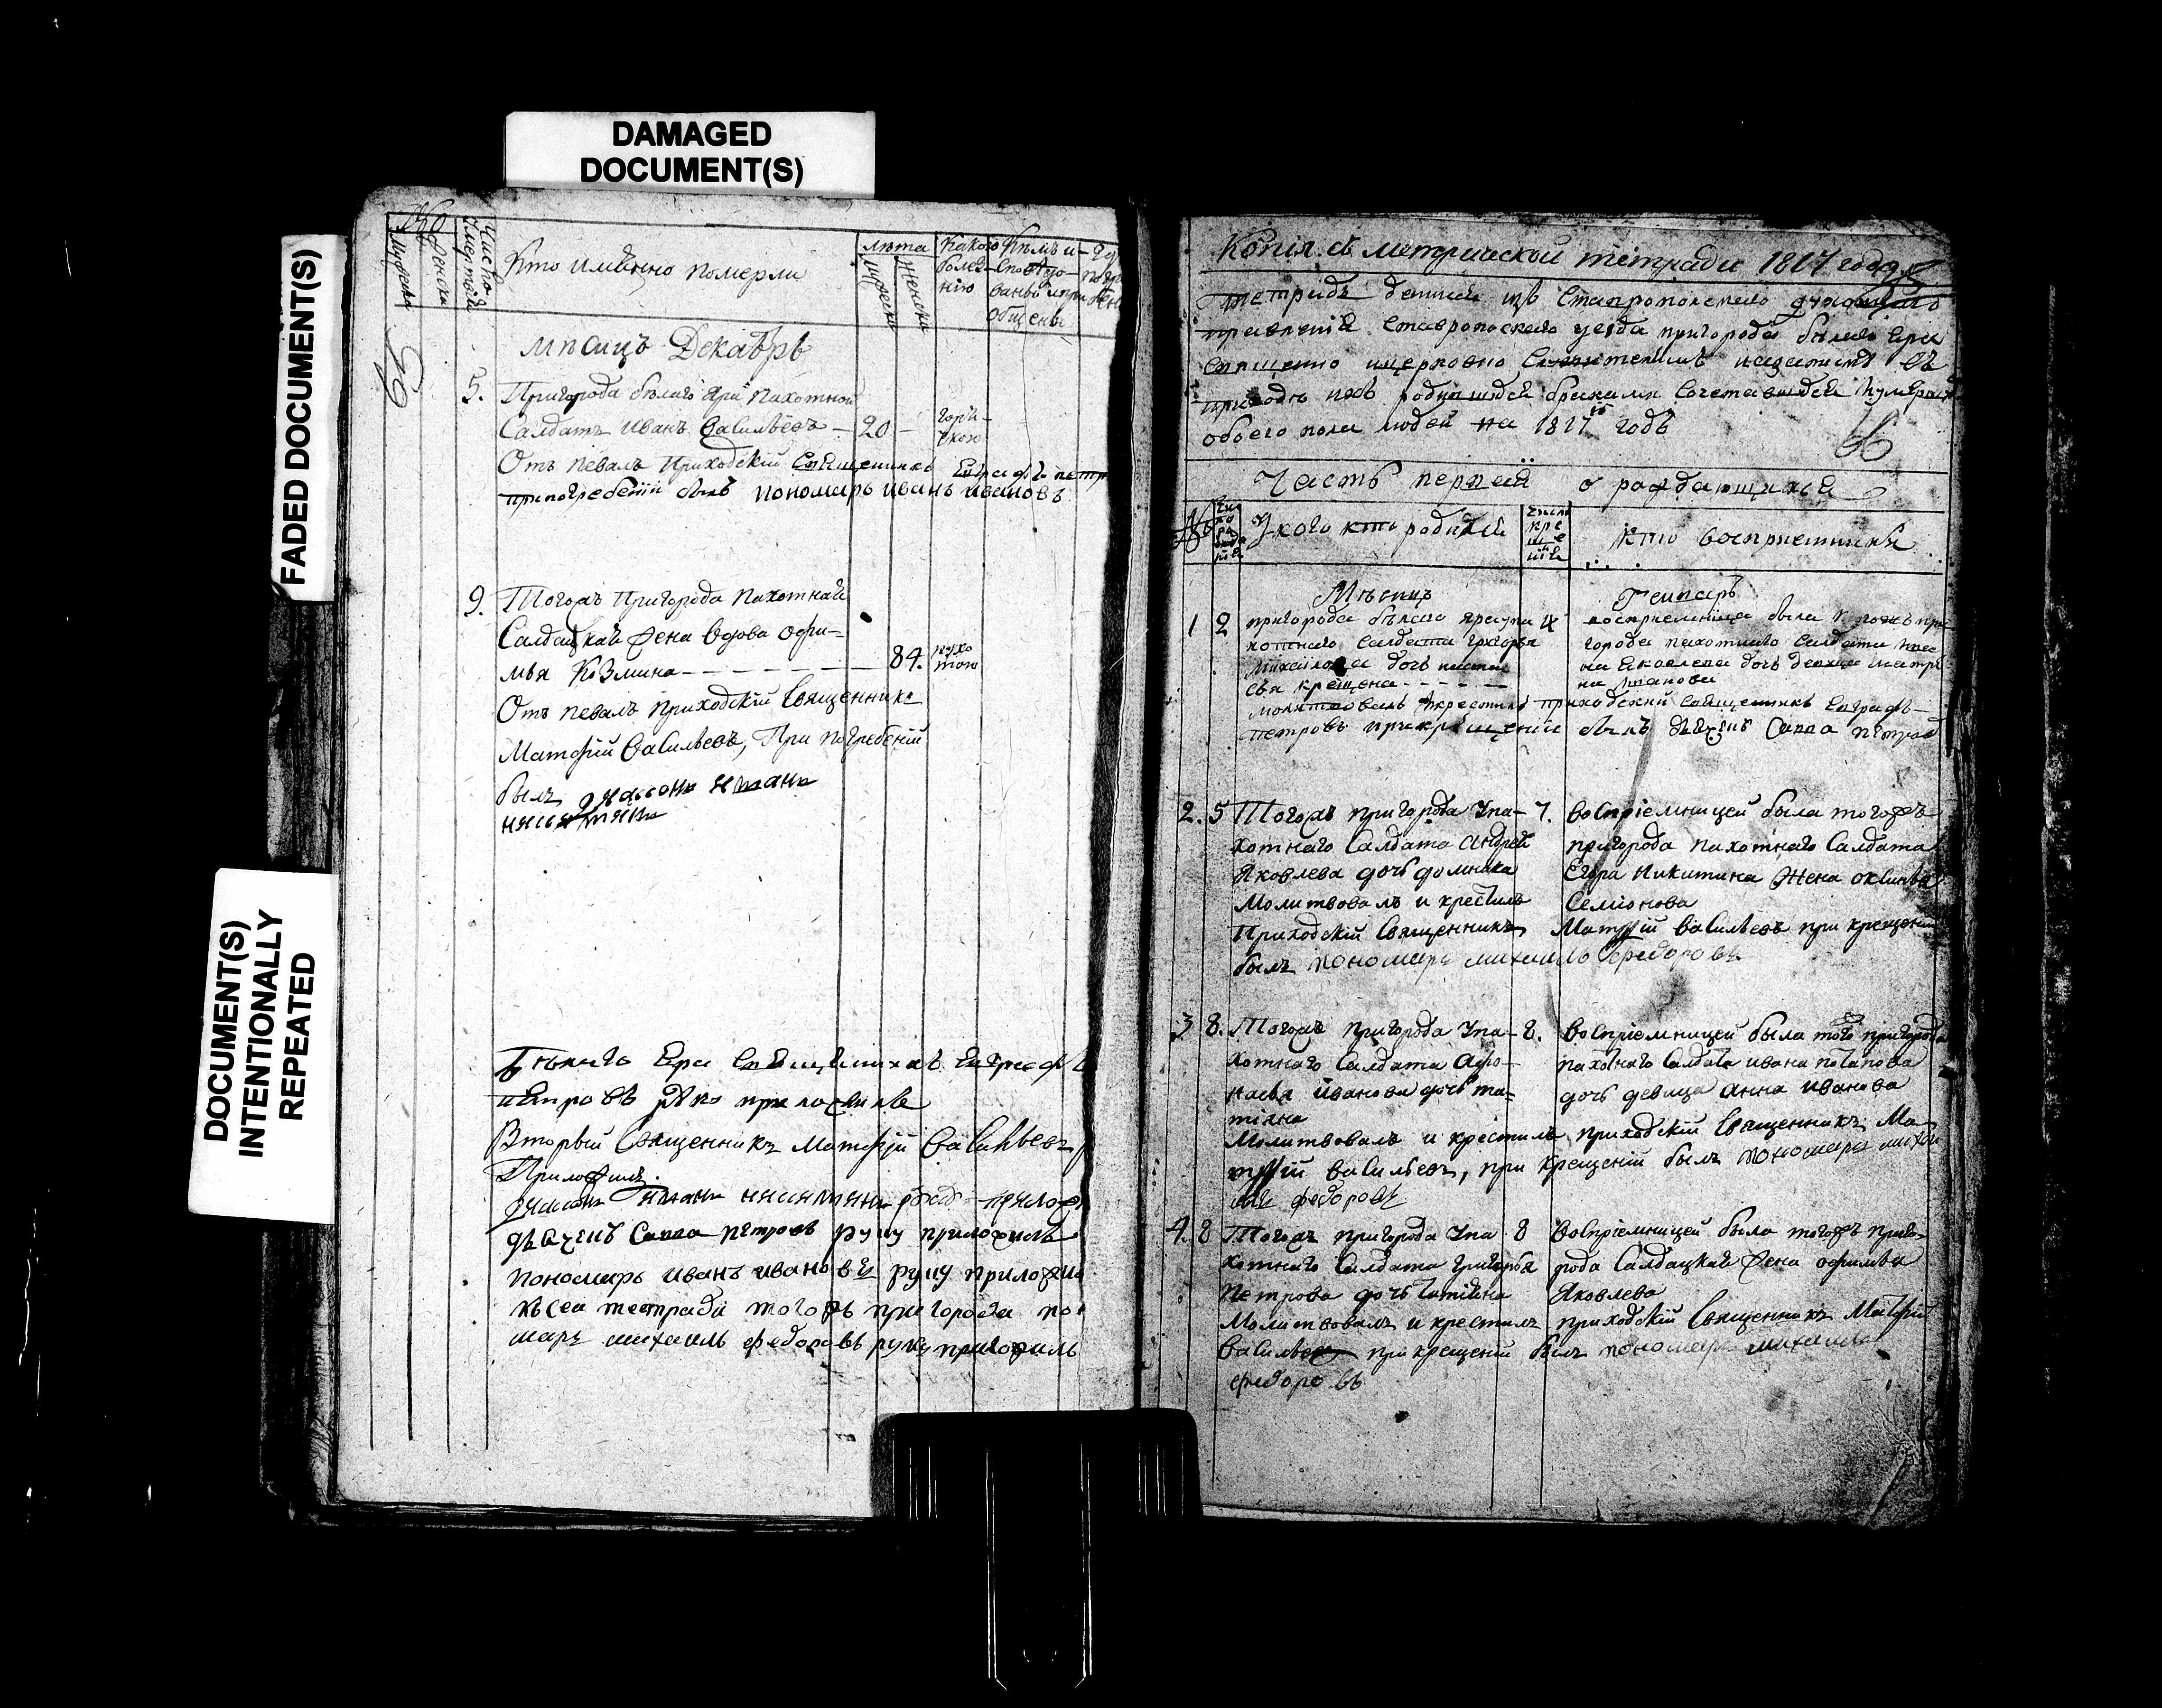 DAMAGED
DOCUMENT(S)
FADED DOCUMENT(S)
DOCUMENT(S)
INTENTIONALLY
REPEATED
№
мужеска
женска
Число
смертей
Кто имянно померли
лѣта
мужеска
женска
Какою
болѣ-
нію
Кѣмъ и-
споведо-
ваны и прі
общены
мѣсяцъ Декабрь
5. Пригорода белаго Яри пахотной
Салдатъ Иванъ Васильевъ — 20 — горя-
чкою
Отъ певалъ Приходскій Священникъ Евграфъ петр
при погребеніи былъ пономарь иванъ ивановъ
9. Тогожъ Пригорода пахотнай
Салдацкай жена вдова офи-
мья Козмина — 84.
Отъ певалъ приходскій Священникъ
Матфій Васильевъ, При погребеній
былъ
Ера Священникъ Евграфъ
петровъ руку приложилъ
Вторый Священникъ Матфій Васильевъ
Приложилъ.
дьячекъ Савва петровъ руку приложилъ
пономарь иванъ ивановъ руку приложи
къ сеи тетради тогожъ пригорода по
марь михаилъ федоровъ руку приложилъ
Копія съ метрической тетради 1817 года
тетрадь данная изъ Ставропольскаго духовнаго
правленія Ставропоскаго уезда пригорода белаго Ера
священно и церковно Служителямъ въ
приходѣ ихъ родившихся бракамъ сочетавшихся и умерших
обоего пола людей на 1817 годъ
66
Часть первая о раждающихся
№
У кого кто родился
число
кре
ще
нія
Кто восприемники
Мѣсяцъ Генварь
1 2 пригорода белаго яра у па 4
хотнаго салдата григорья
михаилова дочь наста
сья крещена
восприемница была тогожъ при
города пахотнаго салдата
на Яковлева дочь девица матре
на иванова
молитвовалъ и крестилъ приходский священникъ Евграфъ
петровъ при крещении былъ дьячекъ Савва петров
2. 5 Тогожъ пригорода У па- 7.
хотнаго Салдата андрея
Яковлева дочь домника
восприемницей была тогожъ
пригорода пахотнаго Салдата
Егора Никитина жена оксинья
Семионова
Молитвовалъ и крестилъ
Приходскій Священникъ Матфій васильевъ при крещении
былъ пономарь михаилъ федоровъ
3 8. Тогожъ пригорода У па- 8.
хотнаго Салдата Афо-
насья иванова дочь та-
тіяна
восприемницей была того пригорода
пахотнаго Салдата ивана потапова
дочь девица анна иванова
Молитвовалъ и крестилъ приходскій Священникъ Ма-
тфій васильевъ, при крещеній былъ пономарь михаи
лъ федоровъ
4. 8 Тогожъ пригорода У па 8
хотнаго Салдата григорья
Петрова дочь татіяна
восприемницей была тогожъ приго-
рода Салдацкай жена офимья
Яковлева
Молитвовалъ и крестилъ приходскій Священникъ Матфій
Васильевъ при крещеніи былъ пономарь михаилъ
федоровъ